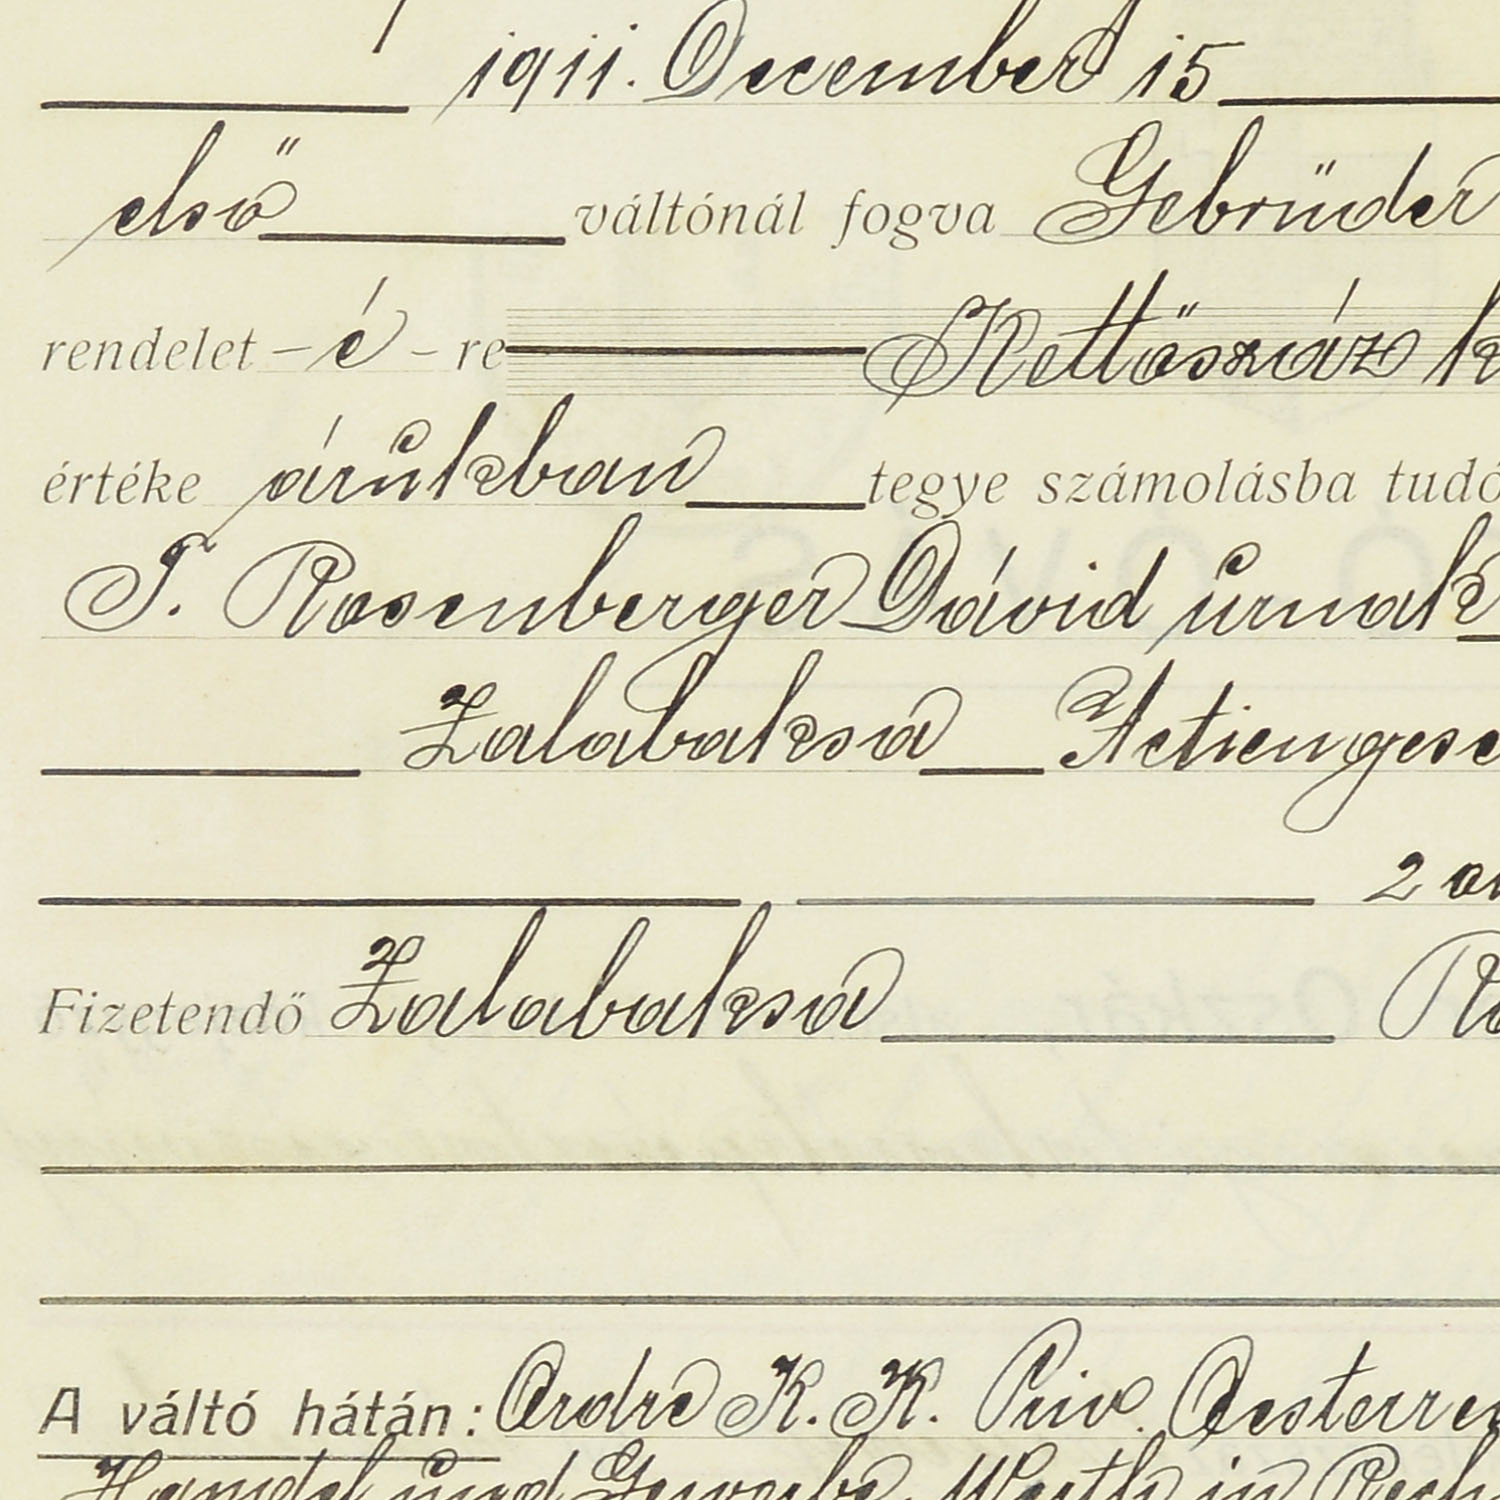 1911. December 15
első váltónál fogva Gebrüder
rendelet - é - re Kettőszáz k
értéke árukban tegye számolásba tudó
T. Rosenberger Dávid úrnak
Zalabaksa Actiengese
2 
Fizetendő Zalabaksa
A váltó hátán: Ordre K. K. Priv. Oesterrei
Handel und Gewerbe, Werth in Rech